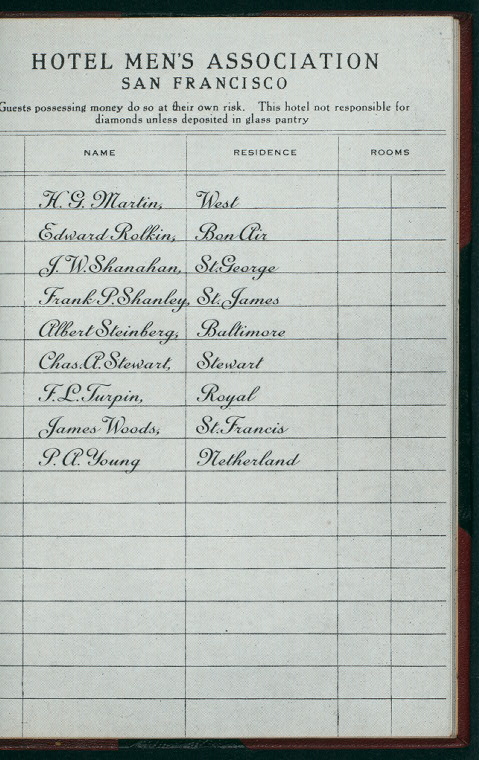 HOTEL MEN'S ASSOCIATION
SAN FRANCISCO
Guests possessing money do so at their own risk. This hotel not responsible for
diamonds unless deposited in glass pantry
NAME RESIDENCE ROOMS
H. G. Martin, West
Edward Rolkin, Bon Air
J. W. Shanahan, St. George
Frank P. Shanley, St. James
Albert Steinberg, Baltimore
Chas. A. Stewart, Stewart
F. L. Turpin, Royal
James Woods, St. Francis
P. A. Young Netherland